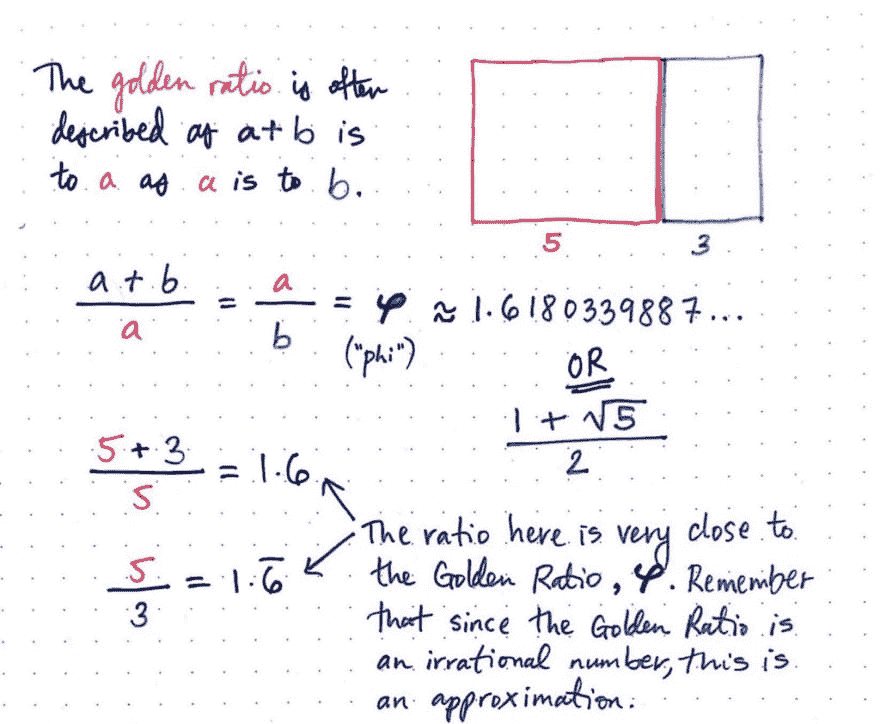 The golden ratio is often
described as a+b is
to a as a is to b.
5 3
a + b / a = a / b = φ ≈ 1.6180339887...
("phi")
OR
1 + √5 / 2
5 + 3 / 5 = 1.6
5 / 3 = 1.6̅
The ratio here is very close to
the Golden Ratio, φ. Remember
that since the Golden Ratio is
an irrational number, this is
an approximation.